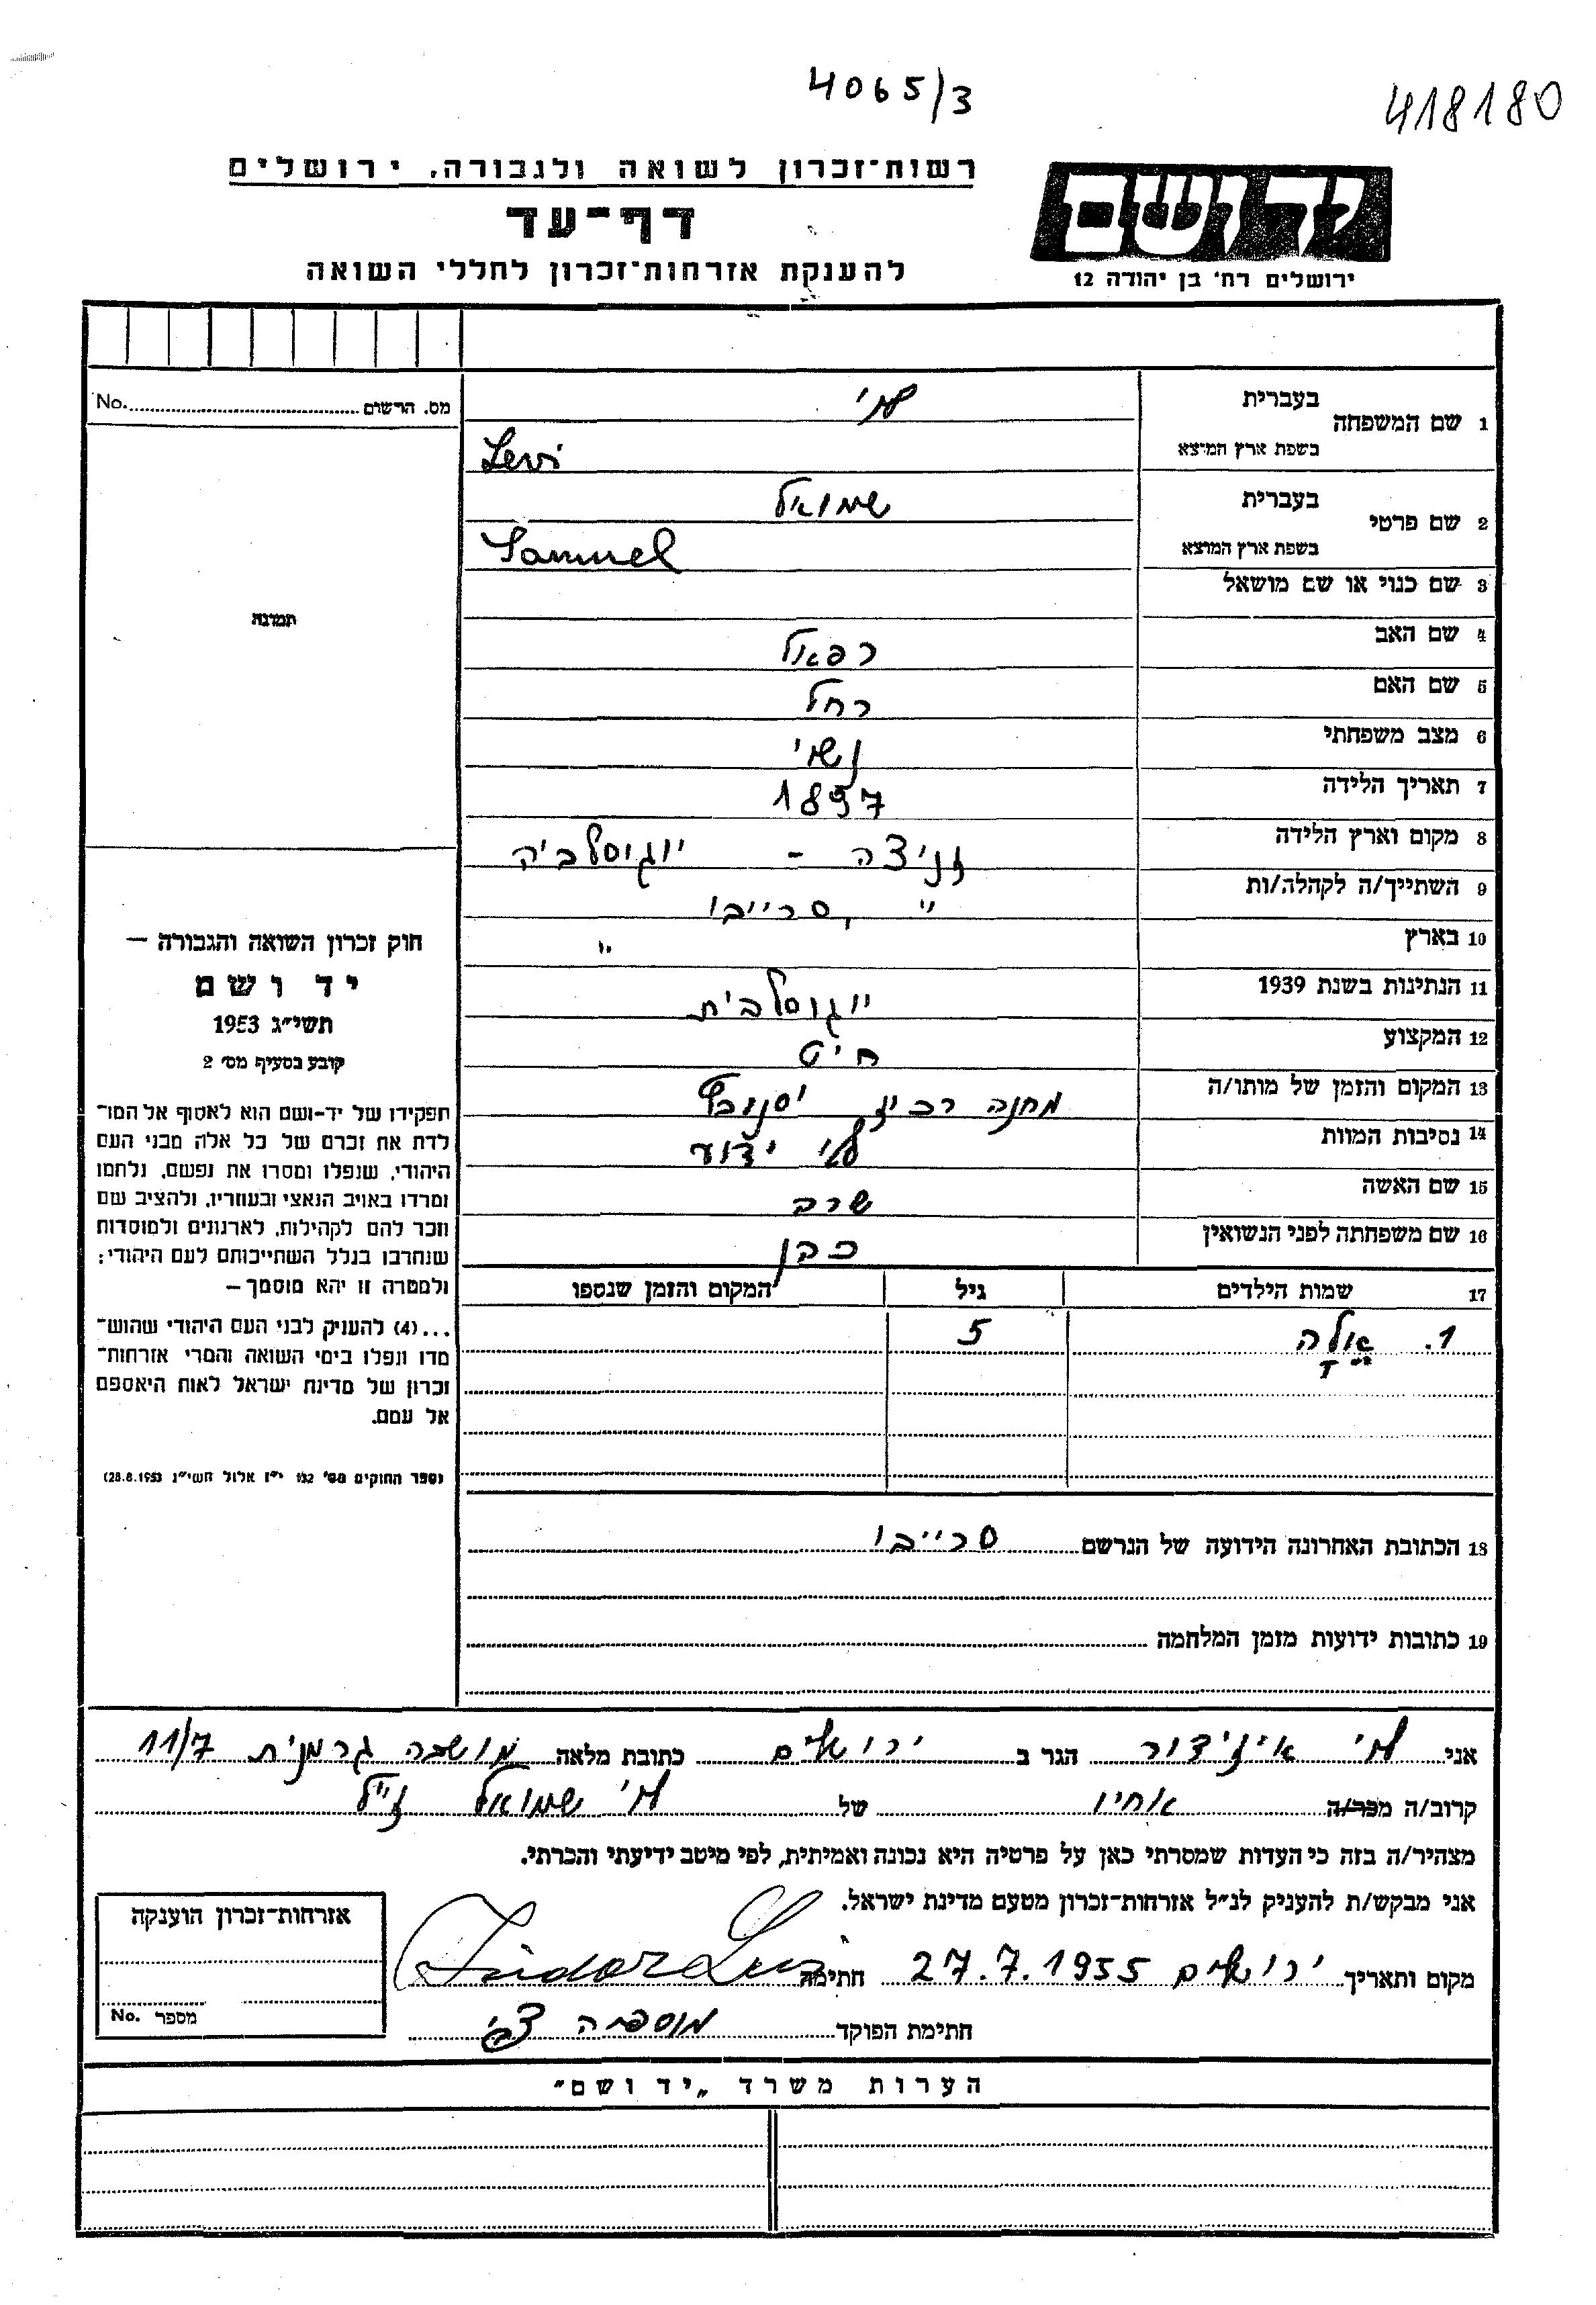 4065/3
418180
רשות־זכרון לשואה ולגבורה, ירושלים
יד ושם
דף־עד
ירושלים רח' בן יהודה 12
להענקת אזרחות־זכרון לחללי השואה
מס. הרשום No.
1 שם המשפחה
בעברית
לוי
בשפת ארץ המוצא
Levi
2 שם פרטי
בעברית
שמואל
בשפת ארץ המוצא
Samuel
תמונה
3 שם כנוי או שם מושאל
4 שם האב רפאל
5 שם האם רחל
6 מצב משפחתי נשוי
7 תאריך הלידה 1897
8 מקום וארץ הלידה זניצה - יוגוסלביה
9 השתייך/ה לקהלה/ות " , סרייבו
10 בארץ "
11 הנתינות בשנת 1939 יוגוסלבית
12 המקצוע חיט
13 המקום והזמן של מותו/ה מחנה רכוז יסנובץ
14 נסיבות המוות לא ידוע
15 שם האשה שרב
16 שם משפחתה לפני הנשואין כהן
17 שמות הילדים גיל המקום והזמן שנספו
1. אלה 5
חוק זכרון השואה והגבורה —
יד ושם
תשי"ג 1953
קובע בסעיף מס' 2
תפקידו של יד-ושם הוא לאסוף אל המו־
לדת את זכרם של כל אלה מבני העם
היהודי, שנפלו ומסרו את נפשם, נלחמו
ומרדו באויב הנאצי ובעוזריו, ולהציב שם
וזכר להם לקהילות, לארגונים ולמוסדות
שנחרבו בגלל השתייכותם לעם היהודי;
ולמטרה זו יהא מוסמך —
...(4) להעניק לבני העם היהודי שהוש־
מדו ונפלו בימי השואה והמרי אזרחות־
זכרון של מדינת ישראל לאות היאספם
אל עמם.
(ספר החוקים מס' 132 י"ז אלול תשי"ג 28.8.1953)
18 הכתובת האחרונה הידועה של הנרשם סרייבו
19 כתובות ידועות מזמן המלחמה
אני לוי איזידור הגר ב ירושלים כתובת מלאה מושבה גרמנית 11/7
קרוב/ה מכר/ה אחיו של לוי שמואל ז"ל
מצהיר/ה בזה כי העדות שמסרתי כאן על פרטיה היא נכונה ואמיתית, לפי מיטב ידיעתי והכרתי.
אני מבקש/ת להעניק לנ"ל אזרחות־זכרון מטעם מדינת ישראל.
מקום ותאריך ירושלים 27.7.1955 חתימה Isidor Levi
חתימת הפוקד
אזרחות־זכרון הוענקה
מספר No.
הערות משרד „יד ושם"